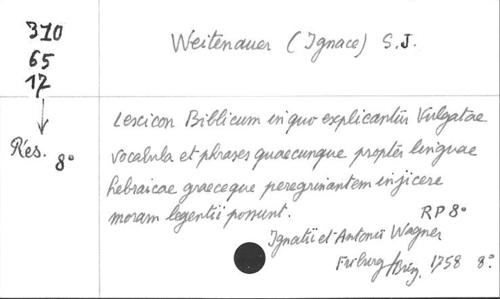 310
65
17
Rés. 8°
Weitenauer (Ignace) S.J.
Lexicon Biblicum in quo explicantur Vulgatae
vocabula et phrases quaecunque propter linguae
hebraicae graeceque peregrinantem injicere
moram legentii possunt.
RP 8°
Ignatii et Antonii Wagner
Friburg/Brig. 1758 8°